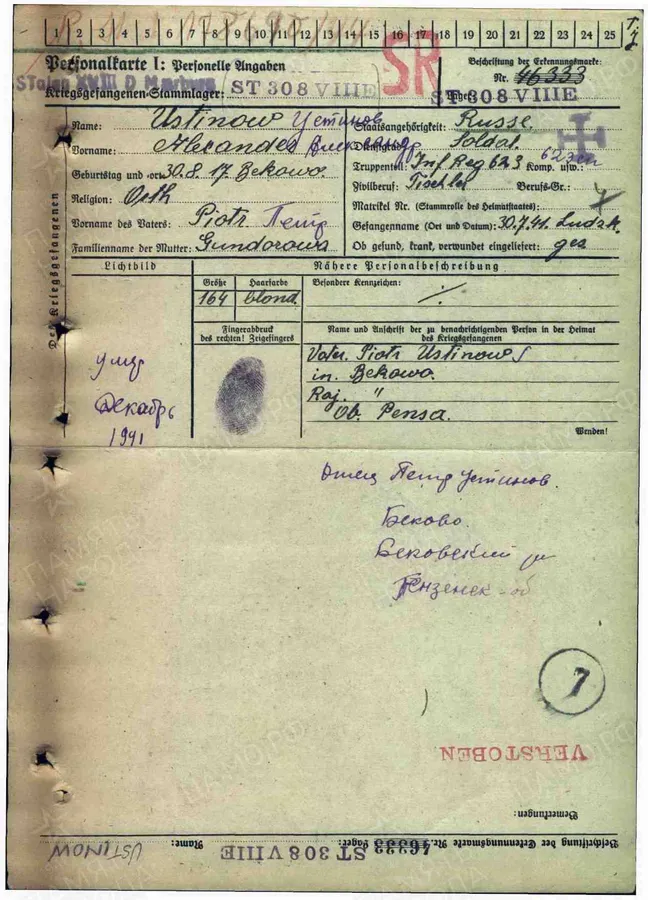 1 2 3 4 5 6 7 8 9 10 11 12 13 14 15 16 17 18 19 20 21 22 23 24 25
Personalkarte I: Personelle Angaben
SR
Beschriftung der Erkennungsmarke:
Nr. 46333
Kriegsgefangenen-Stammlager: ST 308 VIIIE
Lager: ST 308 VIIIE
Des Kriegsgefangenen
Name: Ustinow Устинов
Staatsangehörigkeit: Russe.
Vorname: Alexander Александр
Dienstgrad: Soldat.
Geburtstag und -ort 30.8.17. Bekowo.
Truppenteil: Inf Reg 623 Komp. usw.:
Religion: Orth
Zivilberuf: Tischler Berufs-Gr.:
Matrikel Nr. (Stammrolle des Heimatstaates):
Vorname des Vaters: Piotr Петр
Gefangenname (Ort und Datum): 30.7.41. Luzk.
Familienname der Mutter: Gundorowa
Ob gesund, krank, verwundet eingeliefert: ges
Lichtbild
Nähere Personalbeschreibung
Größe Haarfarbe
164 blond
Besondere Kennzeichen:
Fingerabdruck
des rechten! Zeigefingers
Name und Anschrift der zu benachrichtigenden Person in der Heimat
des Kriegsgefangenen
Vater. Piotr Ustinow
in. Bekowo.
Raj. "
Ob. Pensa.
Wenden!
умер
Декабрь
1941
Отец Петр Устинов.
Беково.
Бековский
7
VERSTOBEN
Bemerkungen:
Beschriftung der Erkennungsmarke Nr. 46333 Lager: ST 308 VIIIE
Name: USTINOW